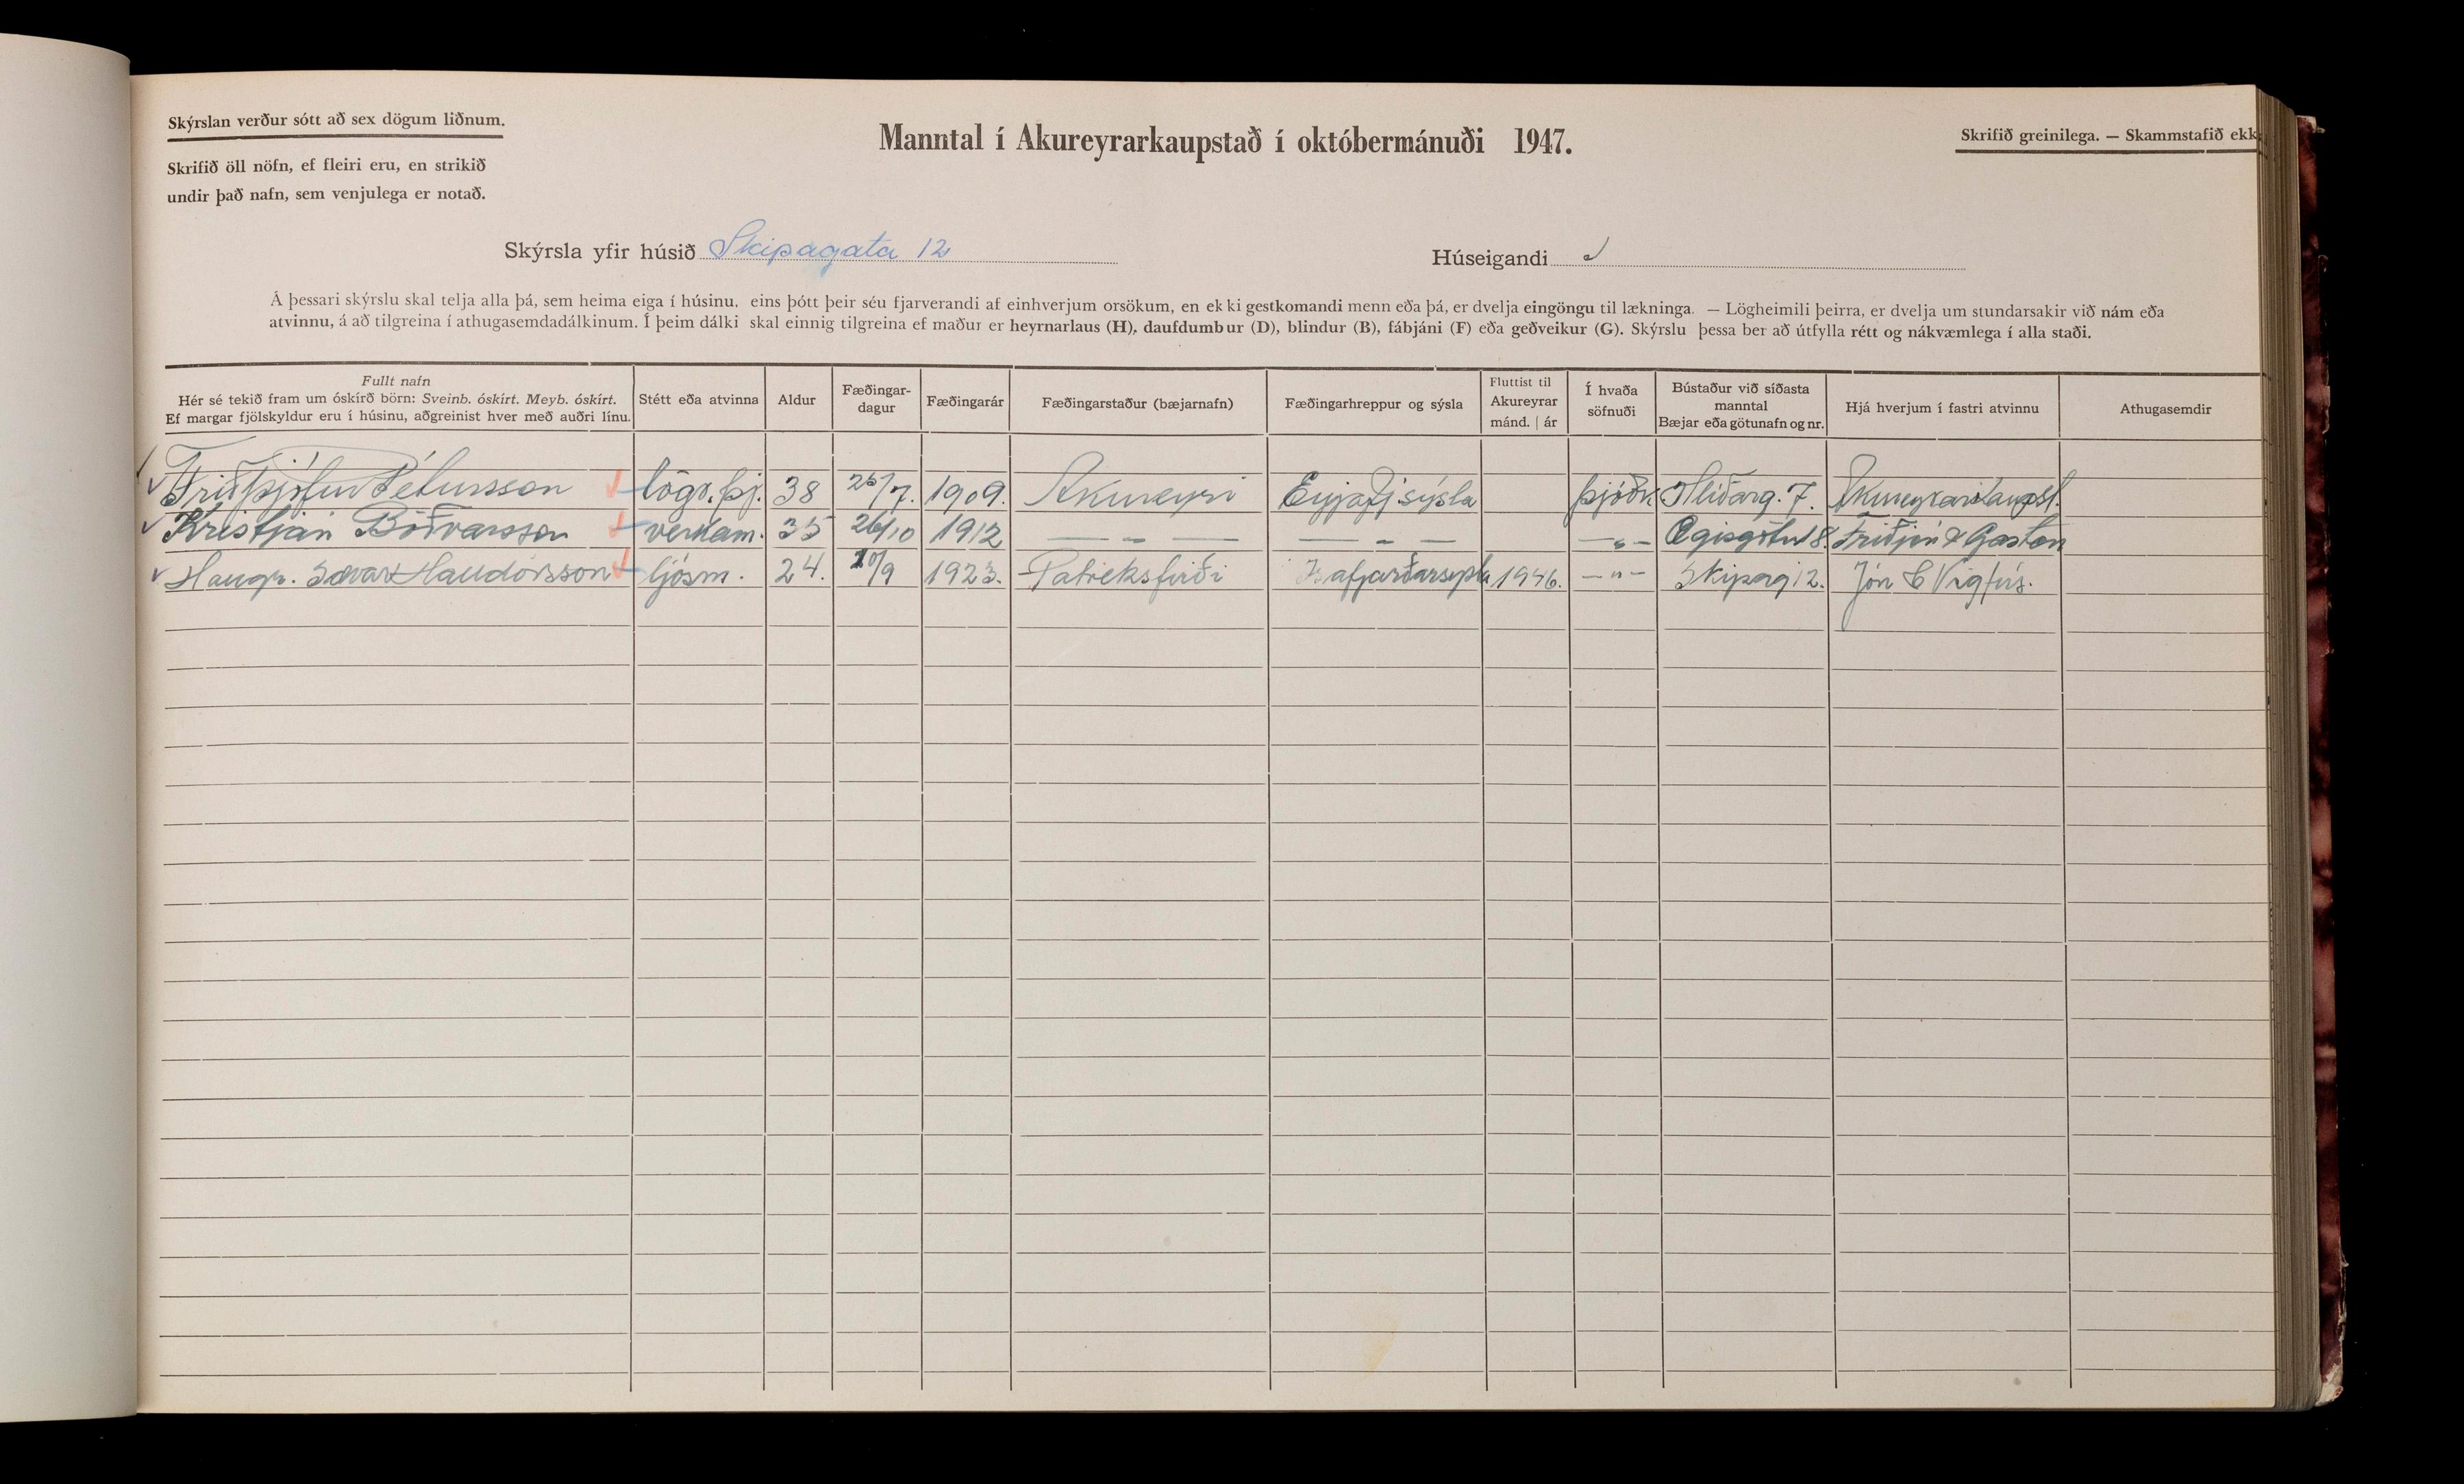 Skýrslan verður sótt að sex dögum liðnum.
Skrifið öll nöfn, ef fleiri eru, en strikið
undir það nafn, sem venjulega er notað.
Manntal í Akureyrarkaupstað í októbermánuði 1947.
Skrifið greinilega. — Skammstafið ekk
Skýrsla yfir húsið Skipagata 12
Húseigandi
Á þessari skýrslu skal telja alla þá, sem heima eiga í húsinu, eins þótt þeir séu fjarverandi af einhverjum orsökum, en ekki gestkomandi menn eða þá, er dvelja eingöngu til lækninga. — Lögheimili þeirra, er dvelja um stundarsakir við nám eða
atvinnu, á að tilgreina í athugasemdadálkinum. Í þeim dálki skal einnig tilgreina ef maður er heyrnarlaus (H), daufdumbur (D), blindur (B), fábjáni (F) eða geðveikur (G). Skýrslu þessa ber að útfylla rétt og nákvæmlega í alla staði.
Fullt nafn
Hér sé tekið fram um óskírð börn: Sveinb. óskírt. Meyb. óskírt.
Ef margar fjölskyldur eru í húsinu, aðgreinist hver með auðri línu.
Stétt eða atvinna
Aldur
Fæðingar-
dagur
Fæðingarár
Fæðingarstaður (bæjarnafn)
Fæðingarhreppur og sýsla
Fluttist til
Akureyrar
mánd. | ár
Í hvaða
söfnuði
Bústaður við síðasta
manntal
Bæjar eða götunafn og nr.
Hjá hverjum í fastri atvinnu
Athugasemdir
Friðþjófur Pétursson lögr.þj. 38 26/7. 1909. Akureyri Eyjafj.sýsla þjóðk Hlíðarg. 7. Akureyrarkaupst.
Kristján Böðvarsson verkam. 35 26/10 1912 — - — — - — — „ - Ægisgötu 18. Friðjón & Gaston
Sævar Halldórsson ljósm. 24. 10/9 1923. Patreksfirði Ísafjarðarsýsla 1946. — " - Skipag 12. Jón & Vigfús.